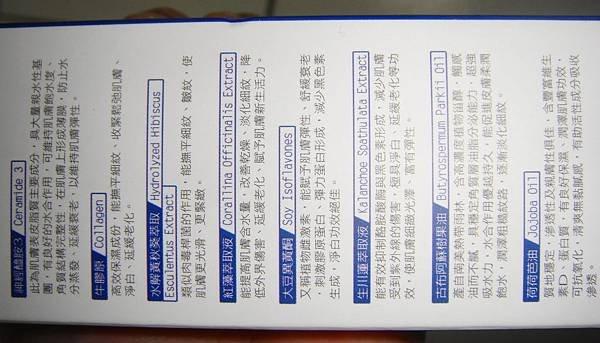 神經醯胺3 Ceramide 3
此為肌膚表皮脂質主要成分，具大量親水性基
團，有良好的水合作用，可維持肌膚飽水度、
角質結構完整性，在肌膚上形成薄膜，防止水
分蒸發、延緩衰老，以維持肌膚彈性。
牛膠原 Collagen
高效保濕成份，能撫平細紋、收緊鬆弛肌膚、
淨白、延緩老化。
水解黃秋葵萃取 Hydrolyzed Hibiscus
Esculentus Extract
類似肉毒桿菌的作用，能撫平細紋、皺紋，使
肌膚更光滑、更緊緻。
紅藻萃取液 Corallina Officinalis Extract
能提高肌膚含水量，改善乾燥、淡化細紋，降
低外界傷害、延緩老化、賦予肌膚新生活力。
大豆異黃酮 Soy Isoflavones
又稱植物雌激素，能賦予肌膚彈性、舒緩衰老
，刺激膠原蛋白、彈力蛋白形成，減少黑色素
生成，淨白功效絕佳。
生川蓮萃取液 Kalanchoe Spathulata Extract
能有效抑制酪胺酸酶與黑色素形成，減少肌膚
受到紫外線的傷害，極具淨白、延緩老化等功
效，使肌膚細緻光澤、富有彈性。
古布阿蘇樹果油 Butyrospemum Parkii Oil
產自南美熱帶雨林，含高濃度植物固醇，觸感
油而不膩，具穩定角質層油脂分泌能力，超強
吸水力，水合作用優越持久，能促進皮膚柔潤
飽水，潤澤粗糙紋路、逐漸淡化細紋。
荷荷芭油 Jojoba Oil
質地穩定，滲透性及親膚性俱佳，含豐富維生
素D、蛋白質，有良好保濕、潤澤肌膚功效，
可抗氧化，清爽無黏膩感，有助活性成分吸收
滲透。